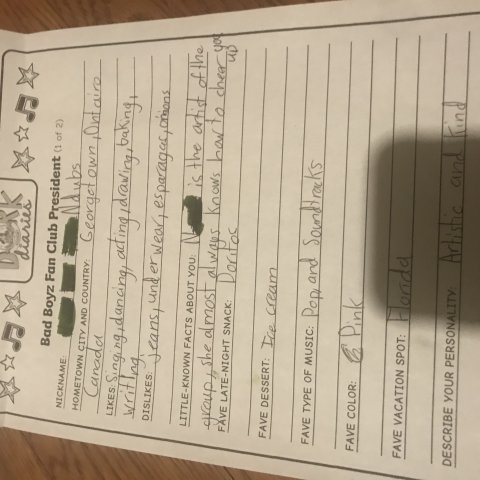 Dork
diaries
Bad Boyz Fan Club President (1 of 2)
NICKNAME:
HOMETOWN CITY AND COUNTRY: Georgetown, Ontairo
Canada
LIKES: Singing, dancing, acting, drawing, baking,
writing
DISLIKES: jeans, underwear, esparagas, onions
LITTLE-KNOWN FACTS ABOUT YOU: N is the artist of the
group, she almost always knows how to cheer you
up
FAVE LATE-NIGHT SNACK: Doritos
FAVE DESSERT: Ice cream
FAVE TYPE OF MUSIC: Pop, and Soundtracks
FAVE COLOR: Pink
FAVE VACATION SPOT: Florida
DESCRIBE YOUR PERSONALITY: Artistic and kind